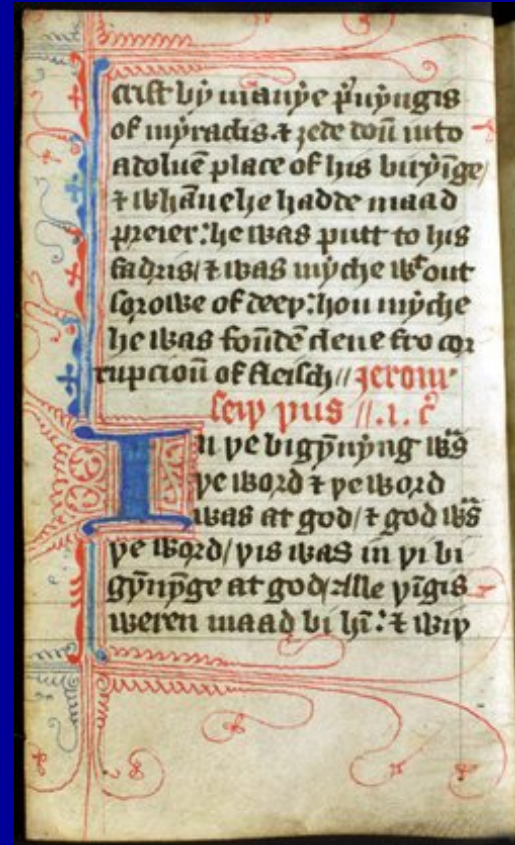 crist bẏ manẏe p̉uẏngis
of mẏraclis. ⁊ ȝede doū into
a doluē place of his birẏīge/
⁊ whāne he hadde maad
preier: he was putt to his
fadris/ ⁊ was mẏche wᵗout
sorowe of deeþ: hou mẏche
he was foūdē clene fro cor
rupcioū of fleisch // Jerom'
seiþ þus // .1. c̉
In þe bigẏn̄ẏng was̄
þe word ⁊ þe word
was at god/ ⁊ god was̄
þe word/ þis was in þi bi
gẏn̄ẏnge at god/ Alle þīgis
weren maad bi hī: ⁊ wiþ